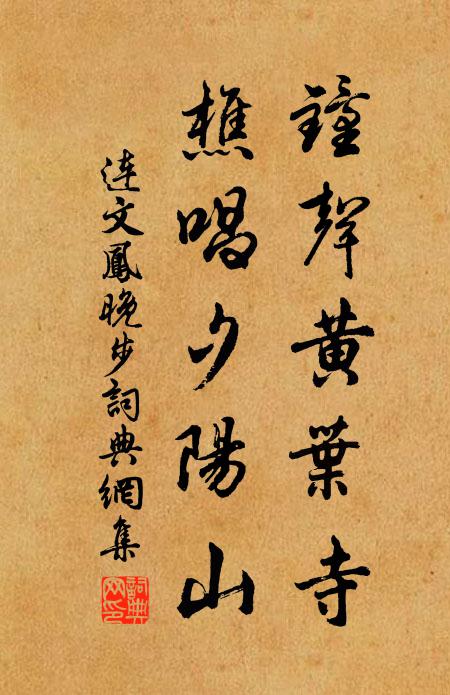 鐘聲黃葉寺
樵唱夕陽山
連文鳳晚步詞典網集
詞典網印